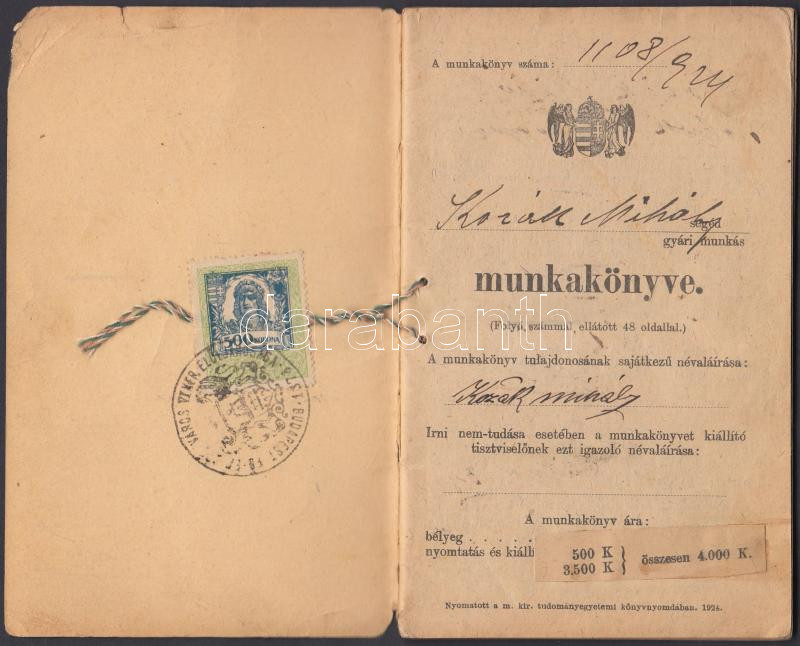 500 KORONA
BUDAPEST
VÁROS VI. KER. ELÖL
A munkakönyv száma: 1108/924
Kozák Mihály
segéd
gyári munkás
munkakönyve.
(Folyó számmal ellátott 48 oldallal.)
A munkakönyv tulajdonosának sajátkezű névaláírása:
Kozák mihály
Irni nem-tudása esetében a munkakönyvet kiállító
tisztviselőnek ezt igazoló névaláírása:
A munkakönyv ára:
bélyeg . . . . . 500 K
nyomtatás és kiállí 3.500 K } összesen 4.000 K.
Nyomatott a m. kir. tudományegyetemi könyvnyomdában. 1924.
darabanth